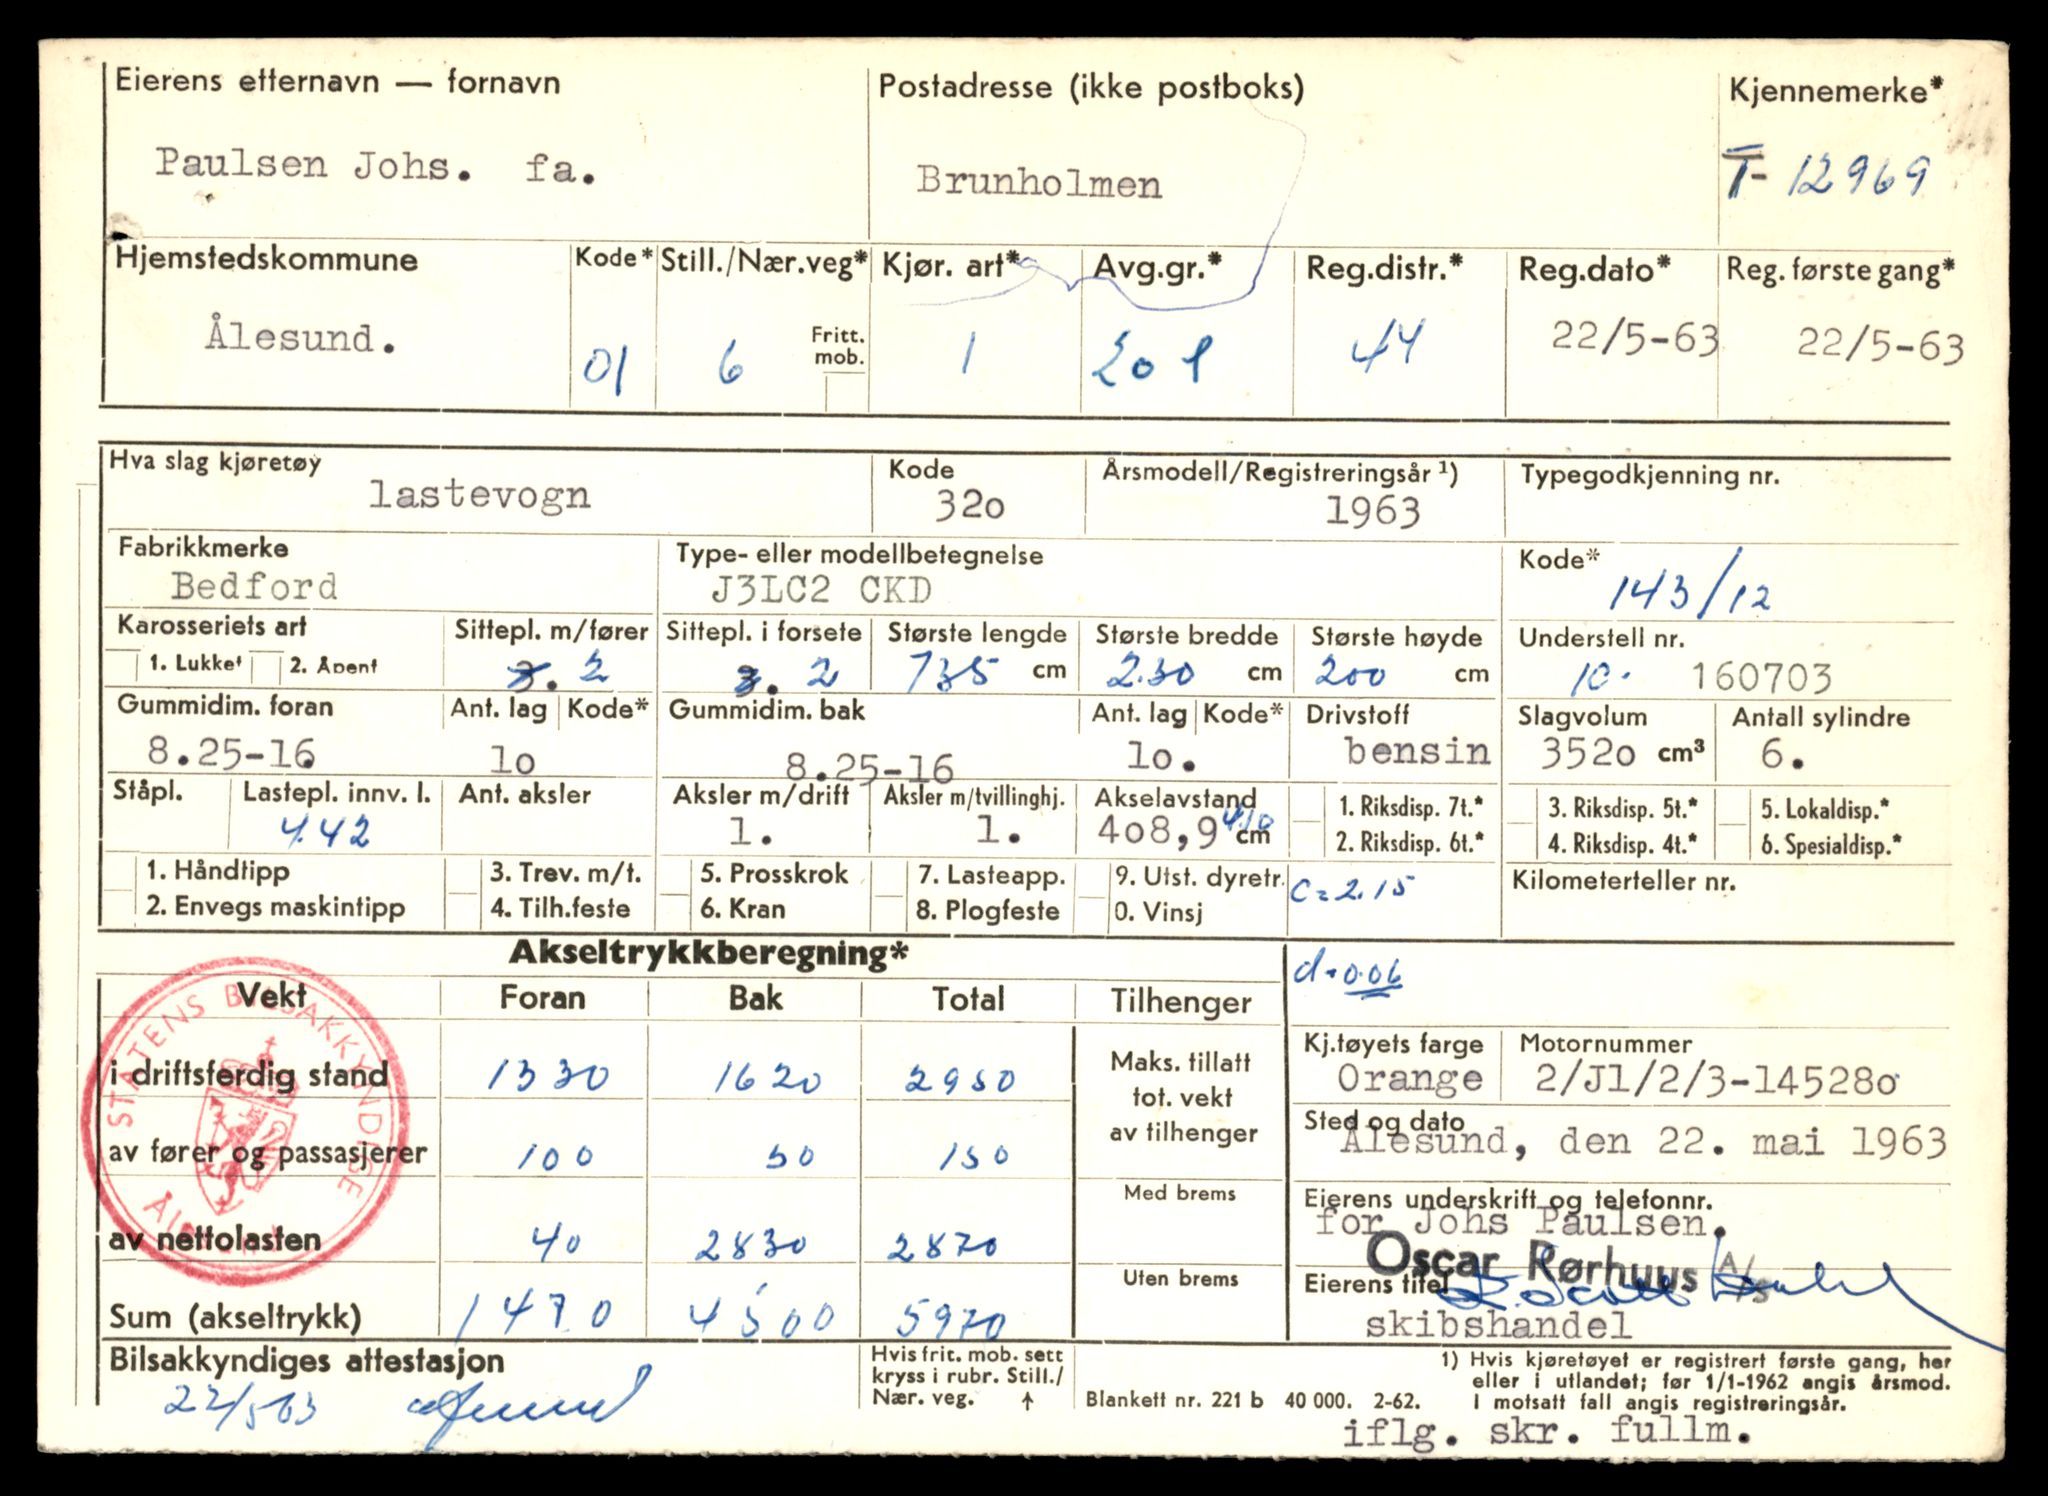 Eierens etternavn — fornavn Postadresse (ikke postboks) Kjennemerke*
Paulsen Johs. fa. Brunholmen T- 12969
Hjemstedskommune Kode* Still./Nær.veg* Kjør. art* Avg.gr.* Reg.distr.* Reg.dato* Reg. første gang*
Ålesund. 01 6 Fritt. mob. 1 201 44 22/5-63 22/5-63
Hva slag kjøretøy Kode Årsmodell/Registreringsår ¹) Typegodkjenning nr.
lastevogn 32o 1963
Fabrikkmerke Type- eller modellbetegnelse Kode*
Bedford J3LC2 CKD 143/12
Karosseriets art Sittepl. m/fører Sittepl. i forsete Største lengde Største bredde Største høyde Understell nr.
1. Lukket 2. Åpent 3. 2 3. 2 735 cm 230 cm 200 cm 10. 160703
Gummidim. foran Ant. lag Kode* Gummidim. bak Ant. lag Kode* Drivstoff Slagvolum Antall sylindre
8.25-16 lo 8.25-16 lo. bensin 352o cm³ 6.
Ståpl. Lastepl. innv. l. Ant. aksler Aksler m/drift Aksler m/tvillinghj. Akselavstand 1. Riksdisp. 7t.* 3. Riksdisp. 5t.* 5. Lokaldisp.*
4.42 1. 1. 4o8,9 cm 410 2. Riksdisp. 6t.* 4. Riksdisp. 4t.* 6. Spesialdisp.*
1. Håndtipp 3. Trev. m/t. 5. Prosskrok 7. Lasteapp. 9. Utst. dyretr. C=2.15 Kilometerteller nr.
2. Envegs maskintipp 4. Tilh.feste 6. Kran 8. Plogfeste 0. Vinsj
Akseltrykkberegning* d=0.06
Vekt Foran Bak Total Tilhenger
i driftsferdig stand 1330 1620 2950 Maks. tillatt tot. vekt av tilhenger
av fører og passasjerer 100 50 150
Med brems
av nettolasten 40 2830 2870
Uten brems
Sum (akseltrykk) 1470 4500 5970
STATENS BILSAKKYNDIGE
ÅLESUND
Kj.tøyets farge Motornummer
Orange 2/J1/2/3-14528o
Sted og dato
Ålesund, den 22. mai 1963
Eierens underskrift og telefonnr.
for Johs Paulsen.
Oscar Rørhuus A/S
Eierens titel
skibshandel
Bilsakkyndiges attestasjon
22/563
Hvis frit. mob. sett
kryss i rubr. Still./
Nær. veg. ↑
Blankett nr. 221 b 40 000. 2-62.
1) Hvis kjøretøyet er registrert første gang, her
eller i utlandet; før 1/1-1962 angis årsmod.
I motsatt fall angis registreringsår.
iflg. skr. fullm.